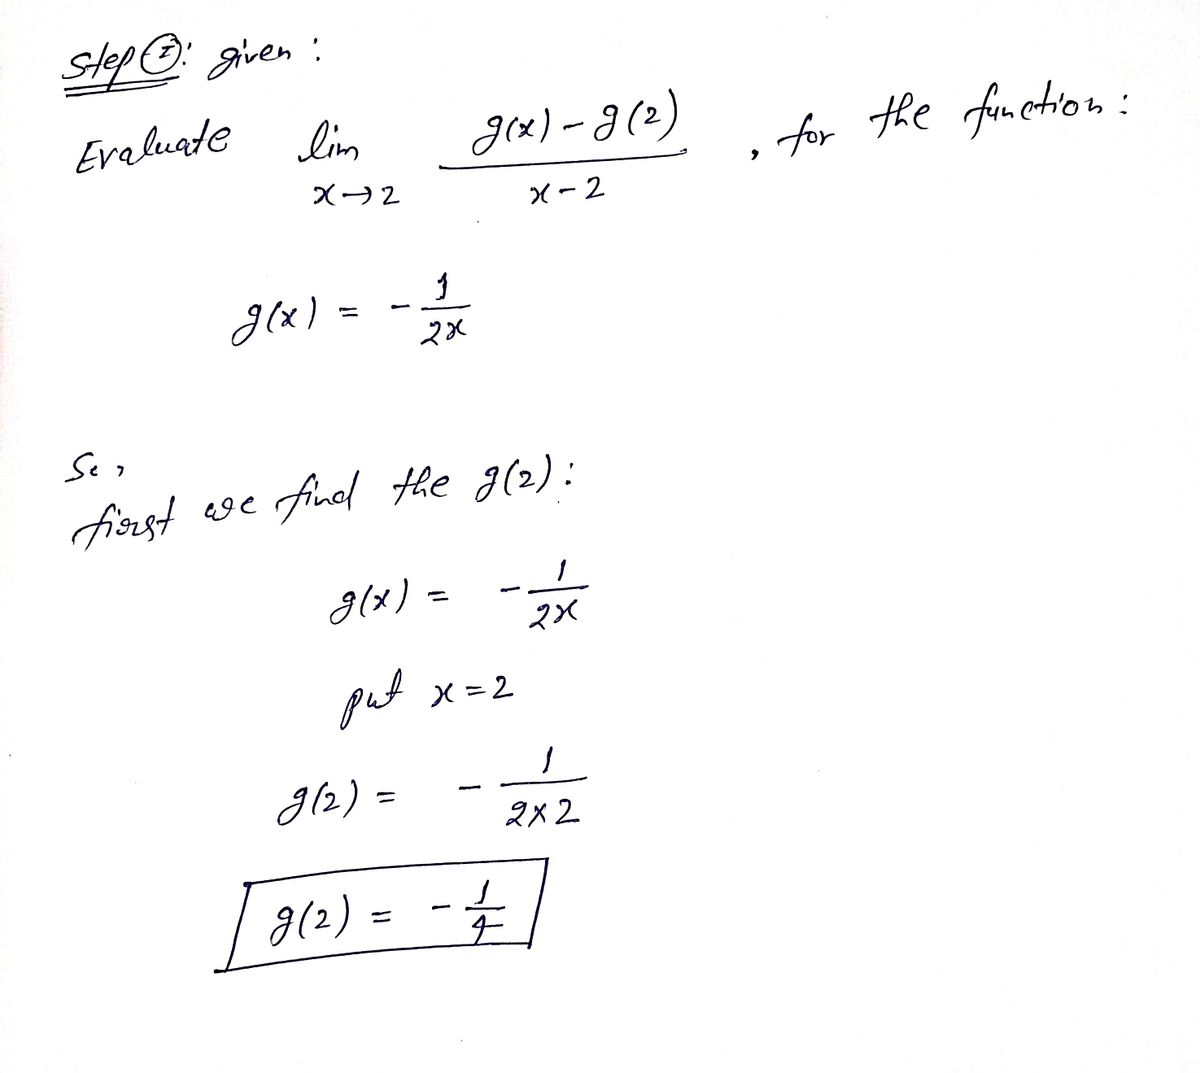 Step ①: given :
Evaluate lim x→2 g(x) - g(2) / x - 2 , for the function :
g(x) = - 1/2x
So,
first we find the g(2) :
g(x) = - 1/2x
put x = 2
g(2) = - 1/2×2
g(2) = - 1/4